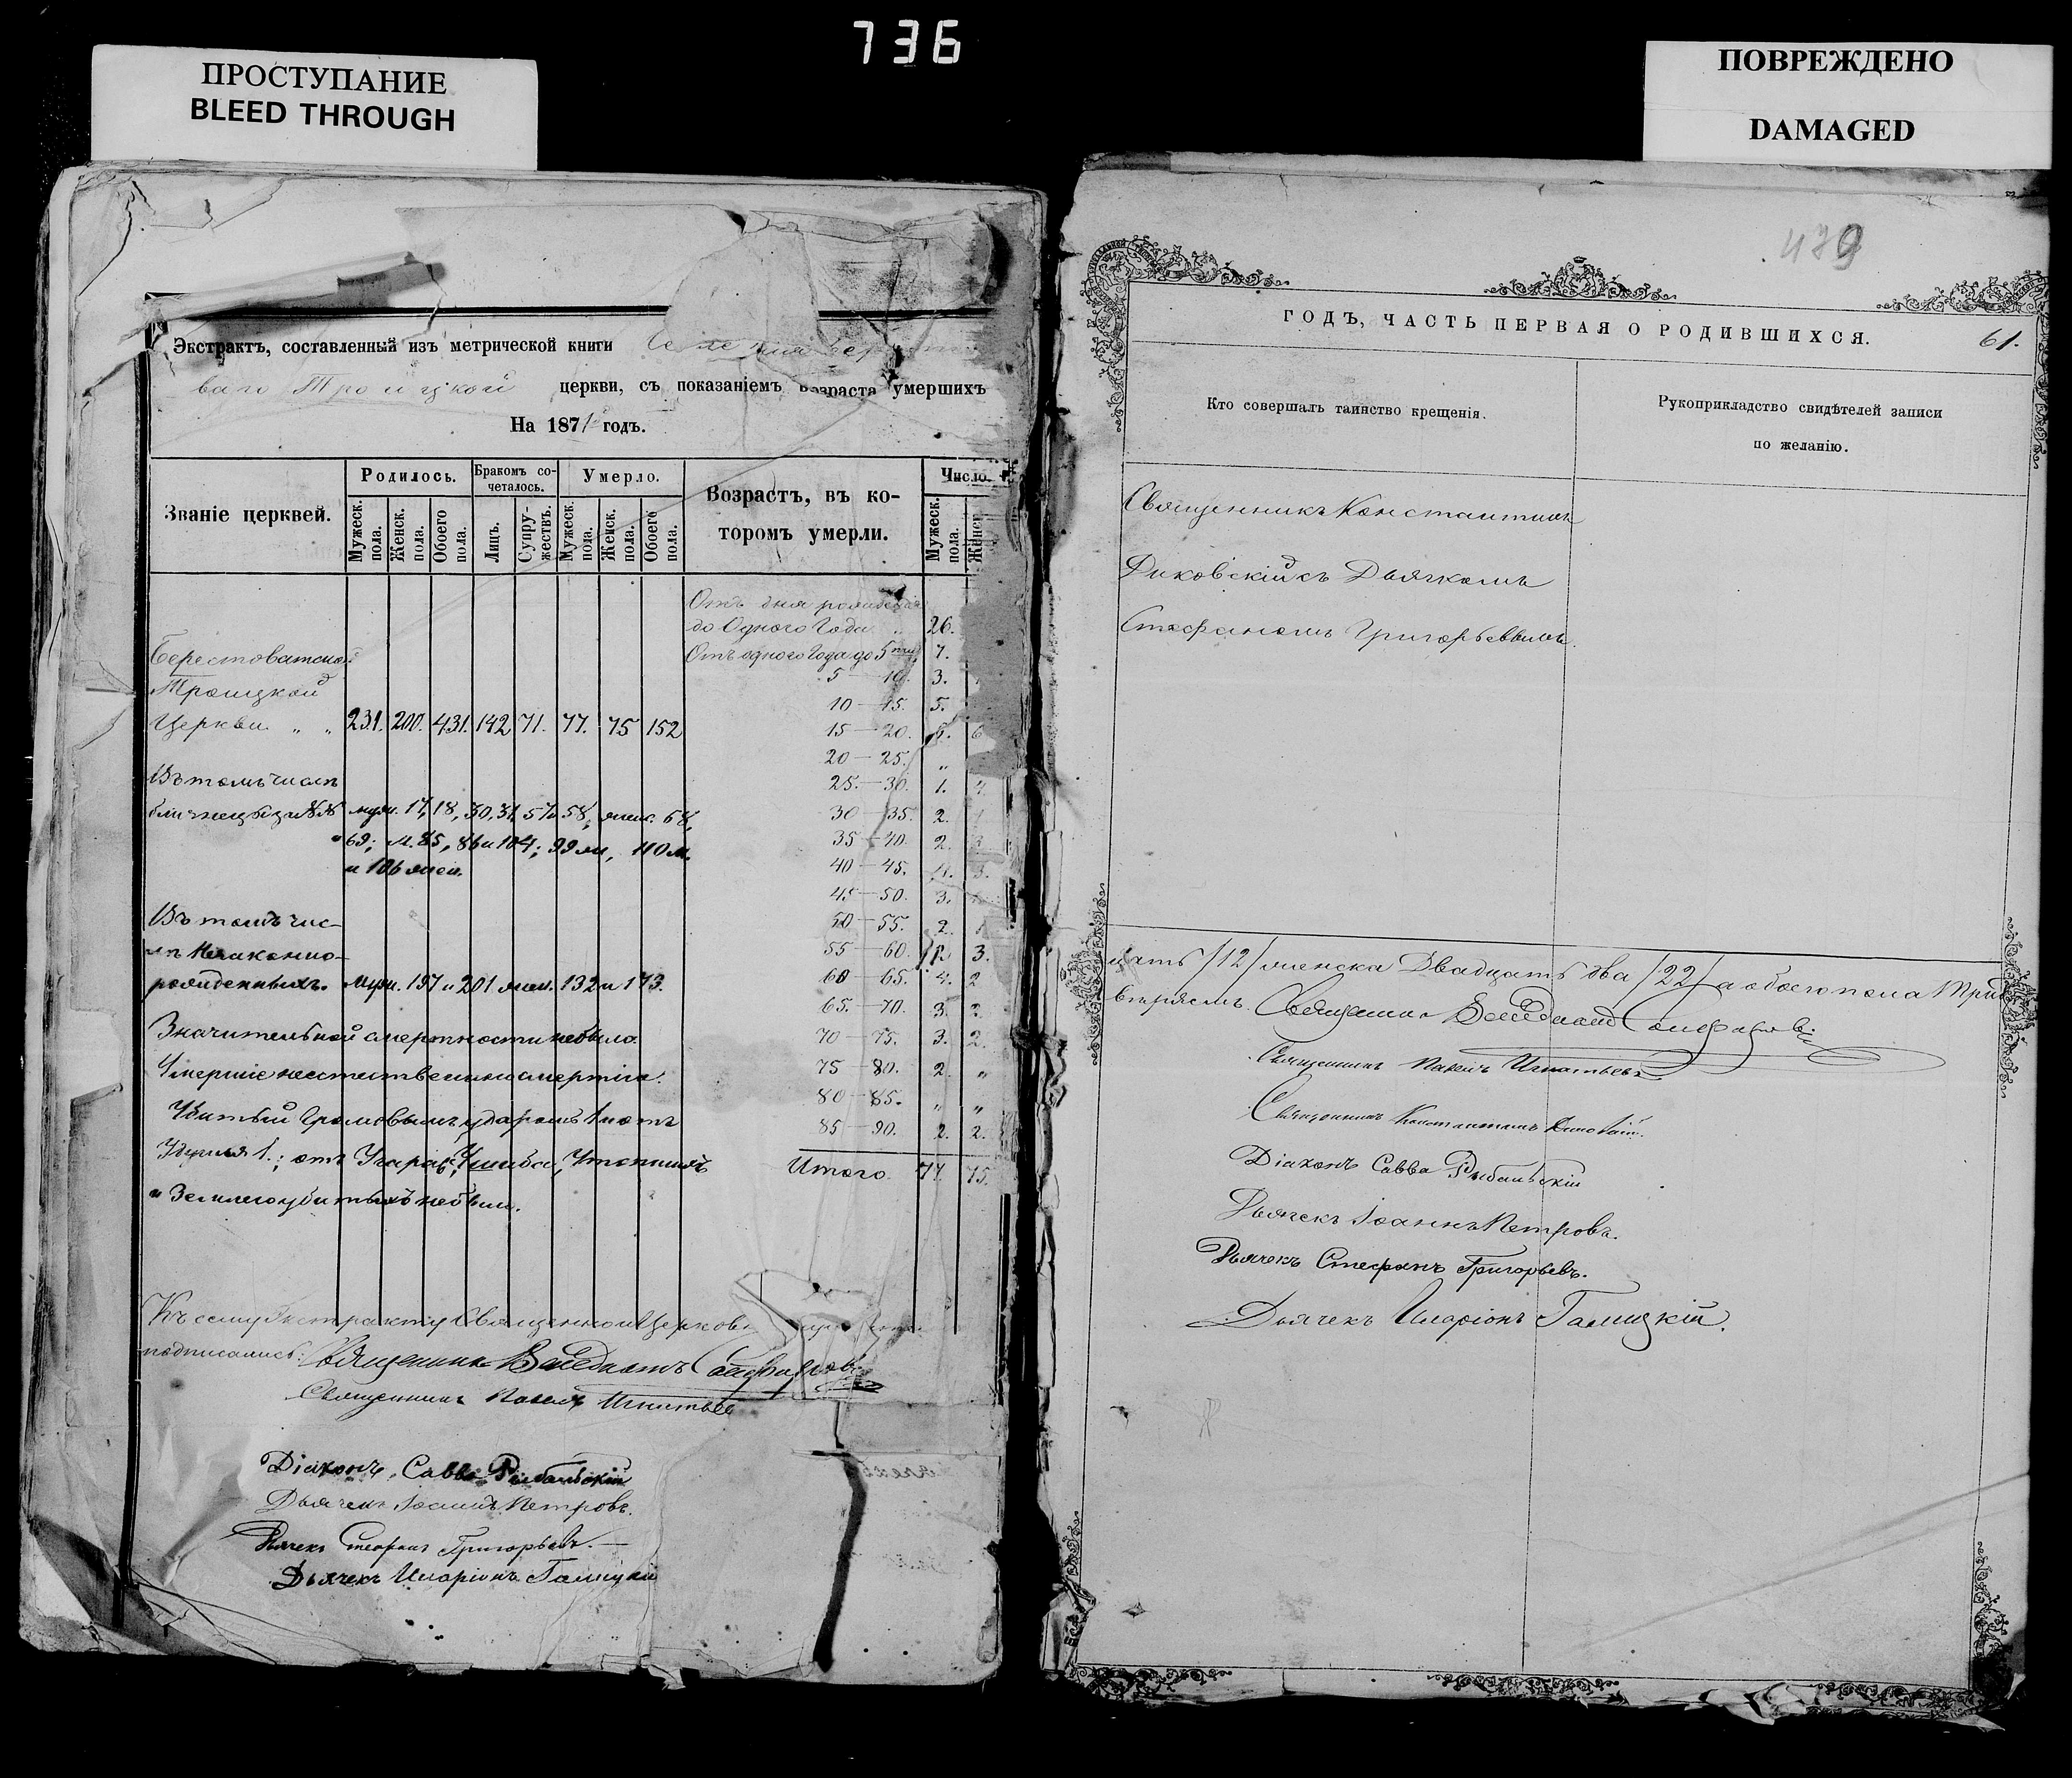 736
ПРОСТУПАНИЕ
BLEED THROUGH
ПОВРЕЖДЕНО
DAMAGED
Экстрактъ, составленный изъ метрической книги
ваго Троицкой церкви, съ показаніемъ возраста умершихъ
На 1871 годъ.
Званіе церквей.
Родилось.
Бракомъ со-
четалось.
Умерло.
Возрастъ, въ ко-
торомъ умерли.
Число.
Мужеск. пола.
Женск. пола.
Обоего пола.
Лицъ.
Супру-жествъ.
Мужеск. пола.
Женск. пола.
Обоего пола.
Мужеск. пола.
Женск.
Отъ дня рожденія
до Одного Года „ 26.
Отъ одного Года до 5ти 7.
5—10. 3.
10—15. 5.
Берестоватской
Троицкой
Церкви „ „ 231. 200. 431. 142 71. 77. 75 152
15—20. 6
20—25. „
25—30. 1. „
30—35. 2. 1
35—40. 2.
40—45. 3.
45—50. 3.
50—55. 2.
55—60. 3.
60—65. 4. 2
65—70. 3. 2
70—75. 3. 2.
75—80. 2. „
80—85. „ „
85—90. 2. 2.
Итого 77. 75.
Въ томъ числѣ
близнецы №№ муж. 17, 18, 30, 31, 57 и 58, жен. 68,
и 69; м. 85, 86 и 104; 99 ж, 110 м.
и 106 жен.
Въ томъ чис-
лѣ Незаконно-
рожденныхъ. Муж. 197 и 201 жен. 132 и 173.
Значительной смертности небыло.
Умершіе неестественною смертію.
Убитый Громовымъ ударомъ 1 и отъ
1.; отъ Угара, Ушиба, Утопшихъ
и Землею убитыхъ небыли.
Къ сему Экстракту Священно и Церковно
подписались: Священникъ
Священникъ Павелъ Игнатьев
Діаконъ Савва Рыбальскій
Дьячекъ Іоаннъ Петровъ.
Дьячекъ Стефанъ Григорьевъ.
Дьячекъ Иларіонъ Галицкій
479
ГОДЪ, ЧАСТЬ ПЕРВАЯ О РОДИВШИХСЯ.
61.
Кто совершалъ таинство крещенія.
Рукоприкладство свидѣтелей записи
по желанію.
Священникъ Константинъ
съ Дьячкомъ
Стефаномъ Григорьевымъ.
цать /12/ женска Двадцать два /22/ а обоего пола
Священникъ
Священникъ Павелъ Игнатьевъ
Священникъ Константинъ
Діаконъ Савва Рыбальскій
Дьячекъ Іоаннъ Петровъ.
Дьячекъ Стефанъ Григорьевъ.
Дьячекъ Иларіонъ Галицкій.